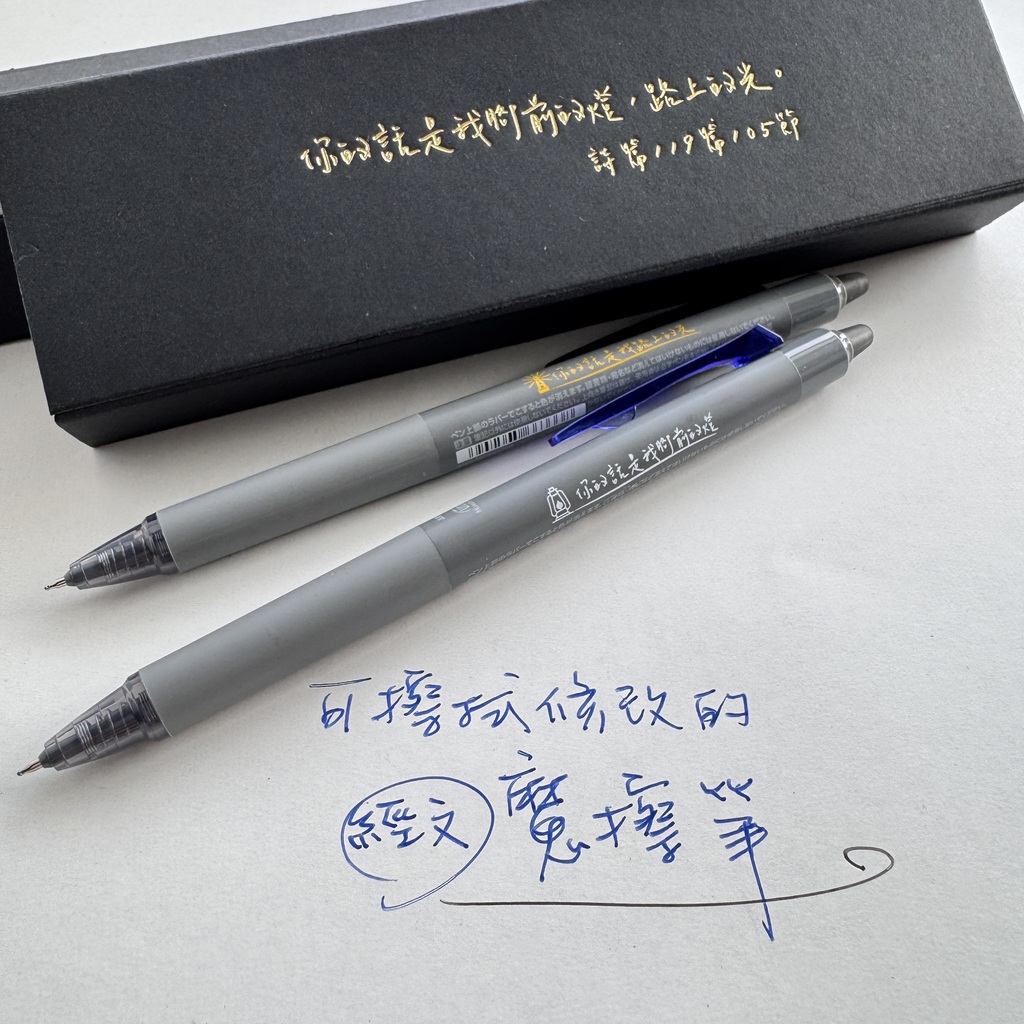 你的話是我腳前的燈，路上的光。
詩篇119篇105節
你的話是我路上的光
ペン上部のラバーでこすると色が消えます。
你的話是我腳前的燈
可擦拭修改的
經文魔擦筆